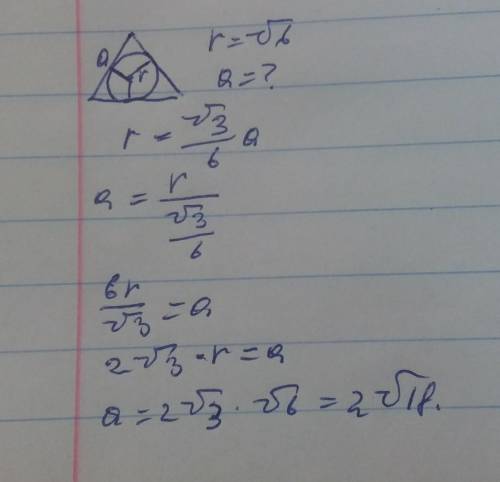 a r
r = √6
a = ?
r = √3/6 a
a = r/(√3/6)
6r/√3 = a
2√3 · r = a
a = 2√3 · √6 = 2√18.